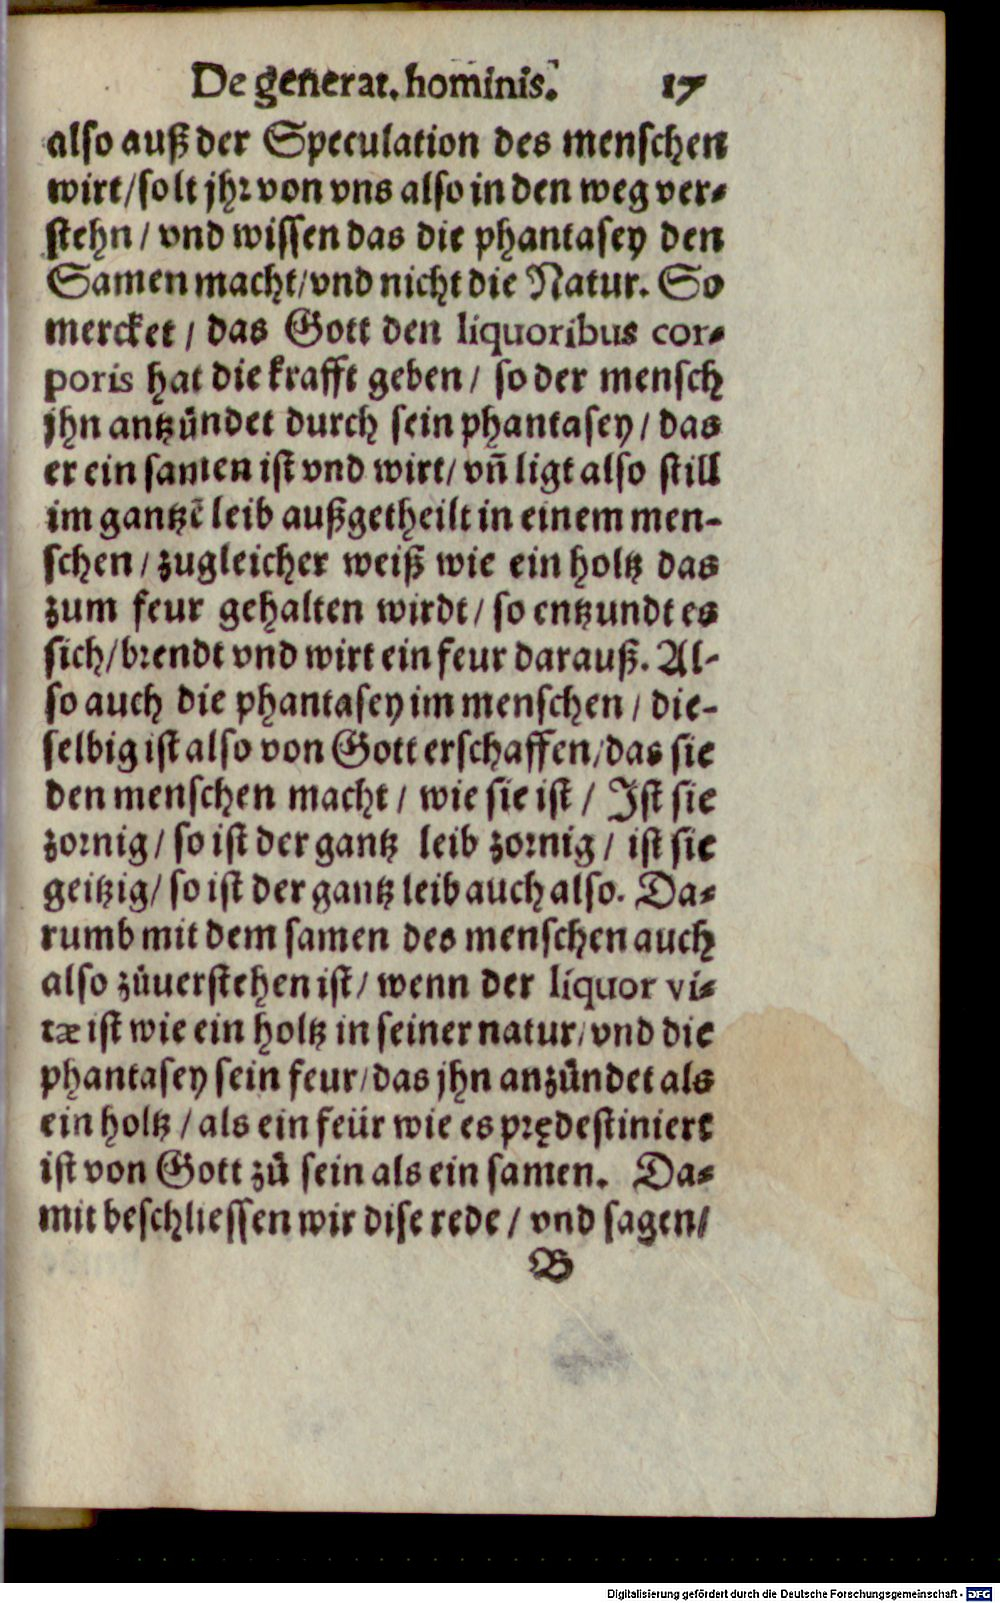 De generat. hominis. 17
also auß der Speculation des menschen
wirt/solt jhr von vns also in den weg ver-
stehn / vnd wissen das die phantasey den
Samen macht/vnd nicht die Natur. So
mercket / das Gott den liquoribus cor-
poris hat die krafft geben / so der mensch
jhn antzündet durch sein phantasey / das
er ein samen ist vnd wirt/ vñ ligt also still
im gantzẽ leib außgetheilt in einem men-
schen / zugleicher weiß wie ein holtz das
zum feur gehalten wirdt / so entzundt es
sich/brendt vnd wirt ein feur darauß. Al-
so auch die phantasey im menschen / die-
selbig ist also von Gott erschaffen/das sie
den menschen macht / wie sie ist / Ist sie
zornig / so ist der gantz leib zornig / ist sie
geitzig/ so ist der gantz leib auch also. Da-
rumb mit dem samen des menschen auch
also zůuerstehen ist / wenn der liquor vi-
tæ ist wie ein holtz in seiner natur/ vnd die
phantasey sein feur/das jhn anzündet als
ein holtz / als ein feür wie es prędestiniert
ist von Gott zů sein als ein samen. Da-
mit beschliessen wir dise rede / vnd sagen/
B
Digitalisierung gefördert durch die Deutsche Forschungsgemeinschaft - DFG